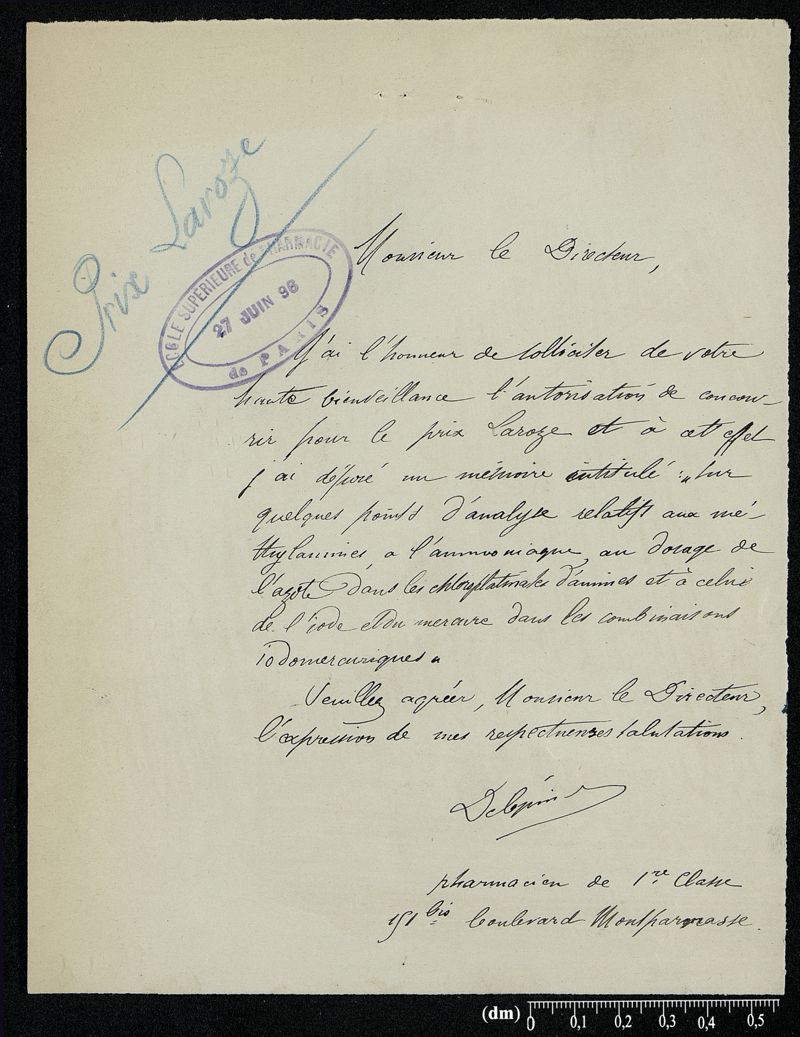 Prix Laroze
ECOLE SUPÉRIEURE de PHARMACIE
27 JUIN 98
de PARIS
Monsieur le Directeur,
J'ai l'honneur de solliciter de votre
haute bienveillance l'autorisation de concou-
rir pour le prix Laroze et à cet effet
j'ai déposé un mémoire intitulé : „ Sur
quelques points d'analyse relatifs aux mé-
thylamines à l'ammoniaque, au dosage de
l'azote dans les chloroplatinates d'amines et à celui
de l'iode et du mercure dans les combinaisons
iodomercuriques „
Veuillez agréer, Monsieur le Directeur,
l'expression de mes respectueuses salutations.
Delépine
pharmacien de 1re Classe
151 bis boulevard Montparnasse.
(dm) 0 0,1 0,2 0,3 0,4 0,5